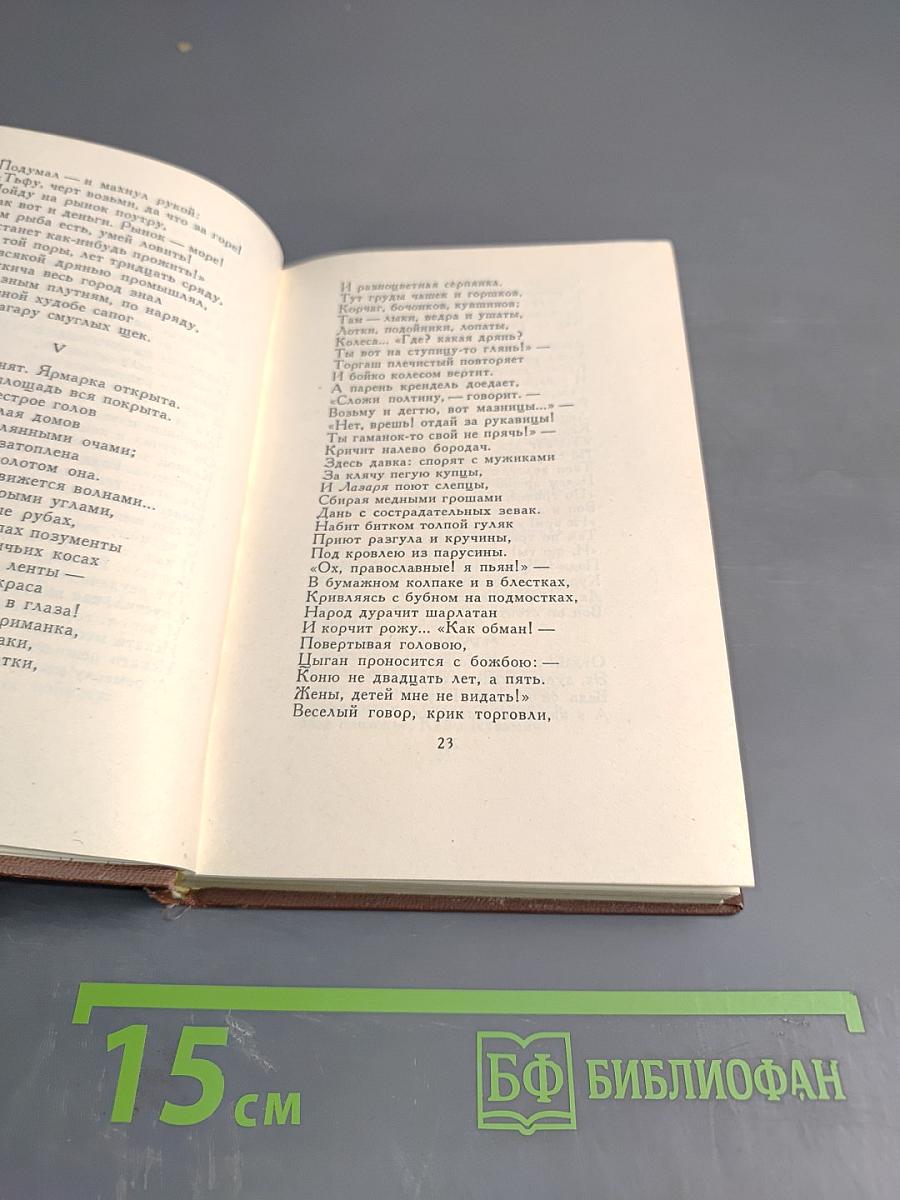 Подумал — и махнул рукой:
«Тьфу, черт возьми, да что за горе!
Пойду на рынок поутру,
ак вот и деньги. Рынок — море!
м рыба есть, умей ловить!
станет как-нибудь прожить!»
той поры, лет тридцать сряду,
всякой дрянью промышлял,
кича весь город знал
зным плутням, по наряду,
ной худобе сапог
агару смуглых щек.
V
нят. Ярмарка открыта.
площадь вся покрыта.
естрое голов
лая домов
лянными очами;
затоплена
олотом она.
вижется волнами...
рыми углами,
ые рубах,
пах позументы
ичьих косах
ленты —
краса
в глаза!
риманка,
аки,
тки,
И разноцветная серпянка.
Тут груды чашек и горшков,
Корчаг, бочонков, кувшинов;
Там — лыки, ведра и ушаты,
Лотки, подойники, лопаты,
Колеса... «Где? какая дрянь?
Ты вот на ступицу-то глянь!» —
Торгаш плечистый повторяет
И бойко колесом вертит.
А парень крендель доедает,
«Сложи полтину, — говорит. —
Возьму и дегтю, вот мазницы...» —
«Нет, врешь! отдай за рукавицы!
Ты гаманок-то свой не прячь!» —
Кричит налево бородач.
Здесь давка: спорят с мужиками
За клячу пегую купцы,
И Лазаря поют слепцы,
Сбирая медными грошами
Дань с сострадательных зевак.
Набит битком толпой гуляк
Приют разгула и кручины,
Под кровлею из парусины.
«Ох, православные! я пьян!» —
В бумажном колпаке и в блестках,
Кривляясь с бубном на подмостках,
Народ дурачит шарлатан
И корчит рожу... «Как обман! —
Повертывая головою,
Цыган проносится с божбою: —
Коню не двадцать лет, а пять.
Жены, детей мне не видать!»
Веселый говор, крик торговли,
23
15 см
БФ БИБЛИОФАН